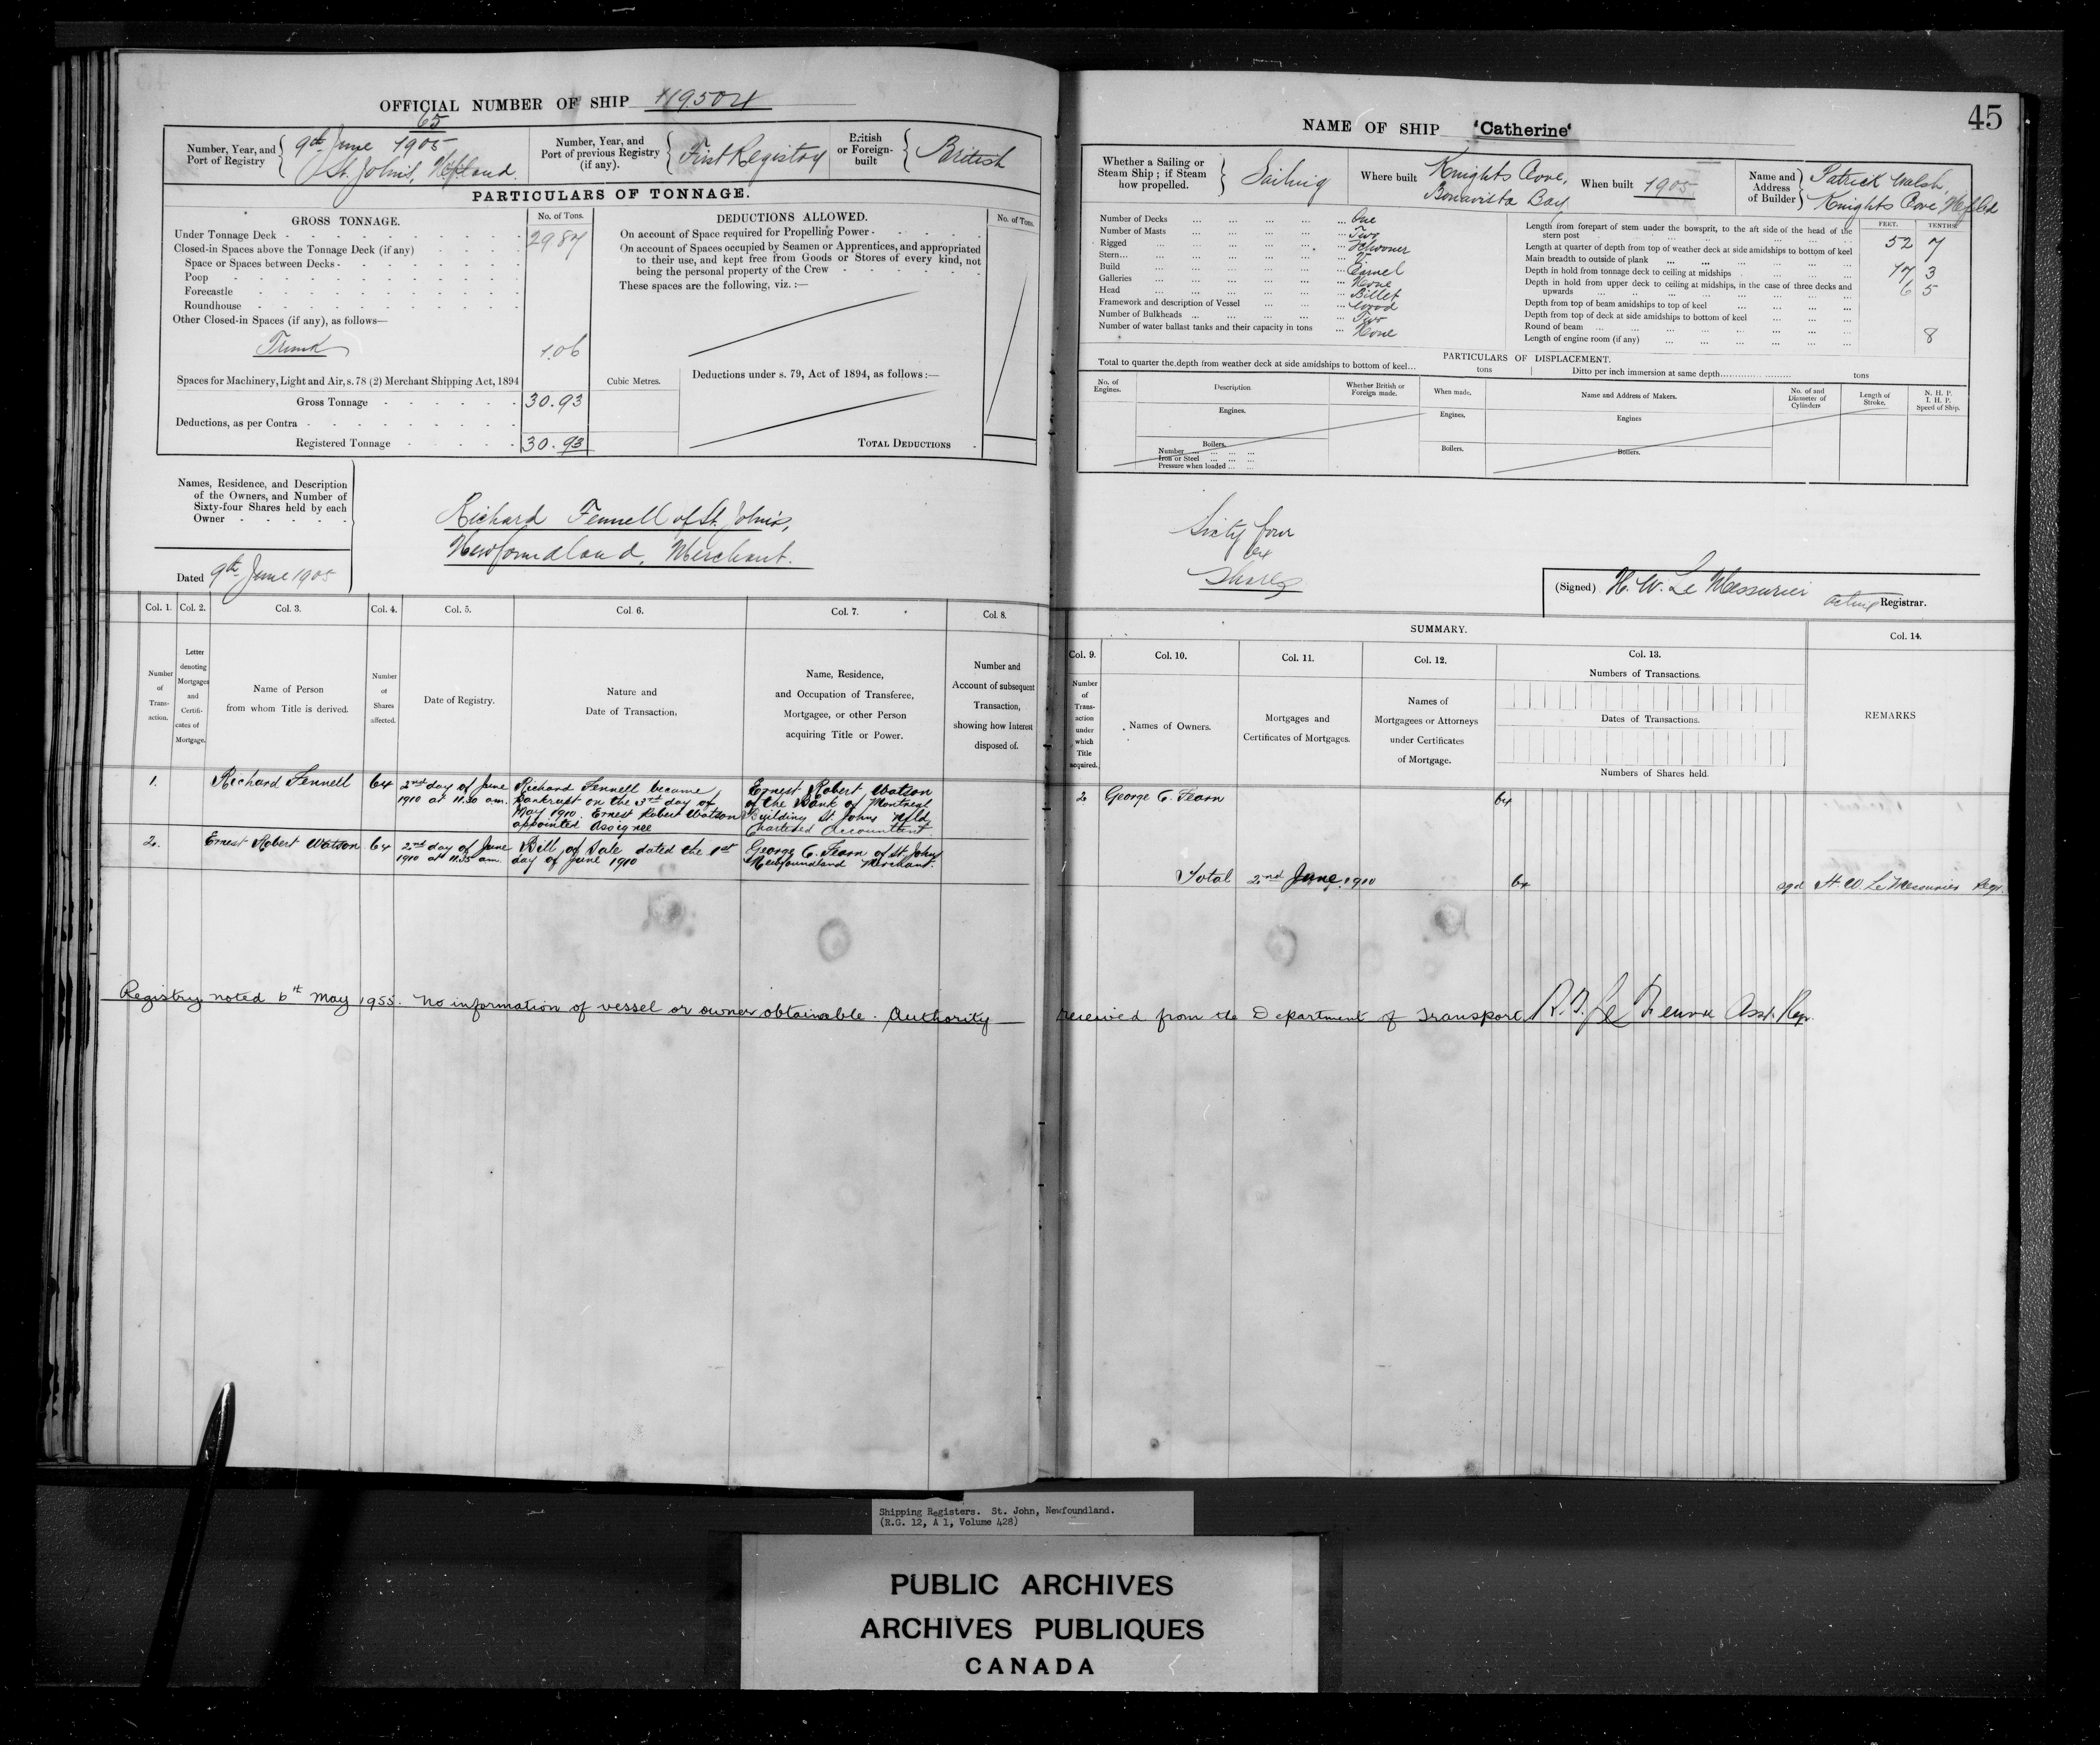 OFFICIAL NUMBER OF SHIP 119504
65
Number, Year, and
Port of Registry
9th June 1905
St. John's, Nfland.
Number, Year, and
Port of previous Registry
(if any).
First Registry
British
or Foreign-
built
British
PARTICULARS OF TONNAGE.
GROSS TONNAGE.
No. of Tons.
Under Tonnage Deck 29.87
Closed-in Spaces above the Tonnage Deck (if any)
Space or Spaces between Decks
Poop
Forecastle
Roundhouse
Other Closed-in Spaces (if any), as follows—
Trunk 1.06
Spaces for Machinery, Light and Air, s. 78 (2) Merchant Shipping Act, 1894
Gross Tonnage 30.93
Deductions, as per Contra
Registered Tonnage 30.93
Cubic Metres.
DEDUCTIONS ALLOWED.
No. of Tons.
On account of Space required for Propelling Power
On account of Spaces occupied by Seamen or Apprentices, and appropriated
to their use, and kept free from Goods or Stores of every kind, not
being the personal property of the Crew
These spaces are the following, viz. :—
Deductions under s. 79, Act of 1894, as follows :—
TOTAL DEDUCTIONS
Names, Residence, and Description
of the Owners, and Number of
Sixty-four Shares held by each
Owner
Dated 9th June 1905
Richard Fennell of St. John's,
Newfoundland, Merchant.
Col. 1. Col. 2. Col. 3. Col. 4. Col. 5. Col. 6. Col. 7. Col. 8.
Number
of
Trans-
action.
Letter
denoting
Mortgages
and
Certifi-
cates of
Mortgage.
Name of Person
from whom Title is derived.
Number
of
Shares
affected.
Date of Registry.
Nature and
Date of Transaction.
Name, Residence,
and Occupation of Transferee,
Mortgagee, or other Person
acquiring Title or Power.
Number and
Account of subsequent
Transaction,
showing how Interest
disposed of.
1. Richard Fennell 64
2nd day of June
1910 at 11.30 a.m.
Richard Fennell became
Bankrupt on the 3rd day of
May 1910. Ernest Robert Watson
appointed Assignee
Ernest Robert Watson
of the Bank of Montreal
Building St. Johns Nfld
Chartered Accountant.
2. Ernest Robert Watson 64
2nd day of June
1910 at 11.35 a.m.
Bill of Sale dated the 1st
day of June 1910
George C. Fearn of St. Johns
Newfoundland Merchant.
Registry noted 6th May 1955. No information of vessel or owner obtainable. Authority
45
NAME OF SHIP 'Catherine'
Whether a Sailing or
Steam Ship ; if Steam
how propelled.
Sailing
Where built
Knights Cove,
Bonavista Bay
When built 1905
Name and
Address
of Builder
Patrick Walsh,
Knights Cove Nfld
Number of Decks One
Number of Masts Two
Rigged Schooner
Stern
Build Carvel
Galleries None
Head Billet
Framework and description of Vessel Wood
Number of Bulkheads Two
Number of water ballast tanks and their capacity in tons None
FEET. TENTHS.
Length from forepart of stem under the bowsprit, to the aft side of the head of the
stern post 52 7
Length at quarter of depth from top of weather deck at side amidships to bottom of keel
Main breadth to outside of plank 17 3
Depth in hold from tonnage deck to ceiling at midships 6 5
Depth in hold from upper deck to ceiling at midships, in the case of three decks and
upwards
Depth from top of beam amidships to top of keel
Depth from top of deck at side amidships to bottom of keel
Round of beam
Length of engine room (if any)
8
PARTICULARS OF DISPLACEMENT.
Total to quarter the depth from weather deck at side amidships to bottom of keel... tons
Ditto per inch immersion at same depth tons
No. of
Engines.
Description
Whether British or
Foreign made.
When made.
Name and Address of Makers.
No. of and
Diameter of
Cylinders
Length of
Stroke.
N. H. P.
I. H. P.
Speed of Ship.
Engines. Engines. Engines
Boilers. Boilers. Boilers.
Number
Iron or Steel
Pressure when loaded
Sixty four
64
Shares
(Signed) H. W. Le Messurier
acting Registrar.
SUMMARY.
Col. 9. Col. 10. Col. 11. Col. 12. Col. 13. Col. 14.
Number
of
Trans-
action
under
which
Title
acquired.
Names of Owners.
Mortgages and
Certificates of Mortgages.
Names of
Mortgagees or Attorneys
under Certificates
of Mortgage.
Numbers of Transactions.
Dates of Transactions.
Numbers of Shares held.
REMARKS
2 George C. Fearn 64
Total 2nd June 1910 64 sgd H. W. Le Messurier Regr.
received from the Department of Transport Asst. Regr.
Shipping Registers. St. John, Newfoundland.
(R.G. 12, A 1, Volume 428)
PUBLIC ARCHIVES
ARCHIVES PUBLIQUES
CANADA